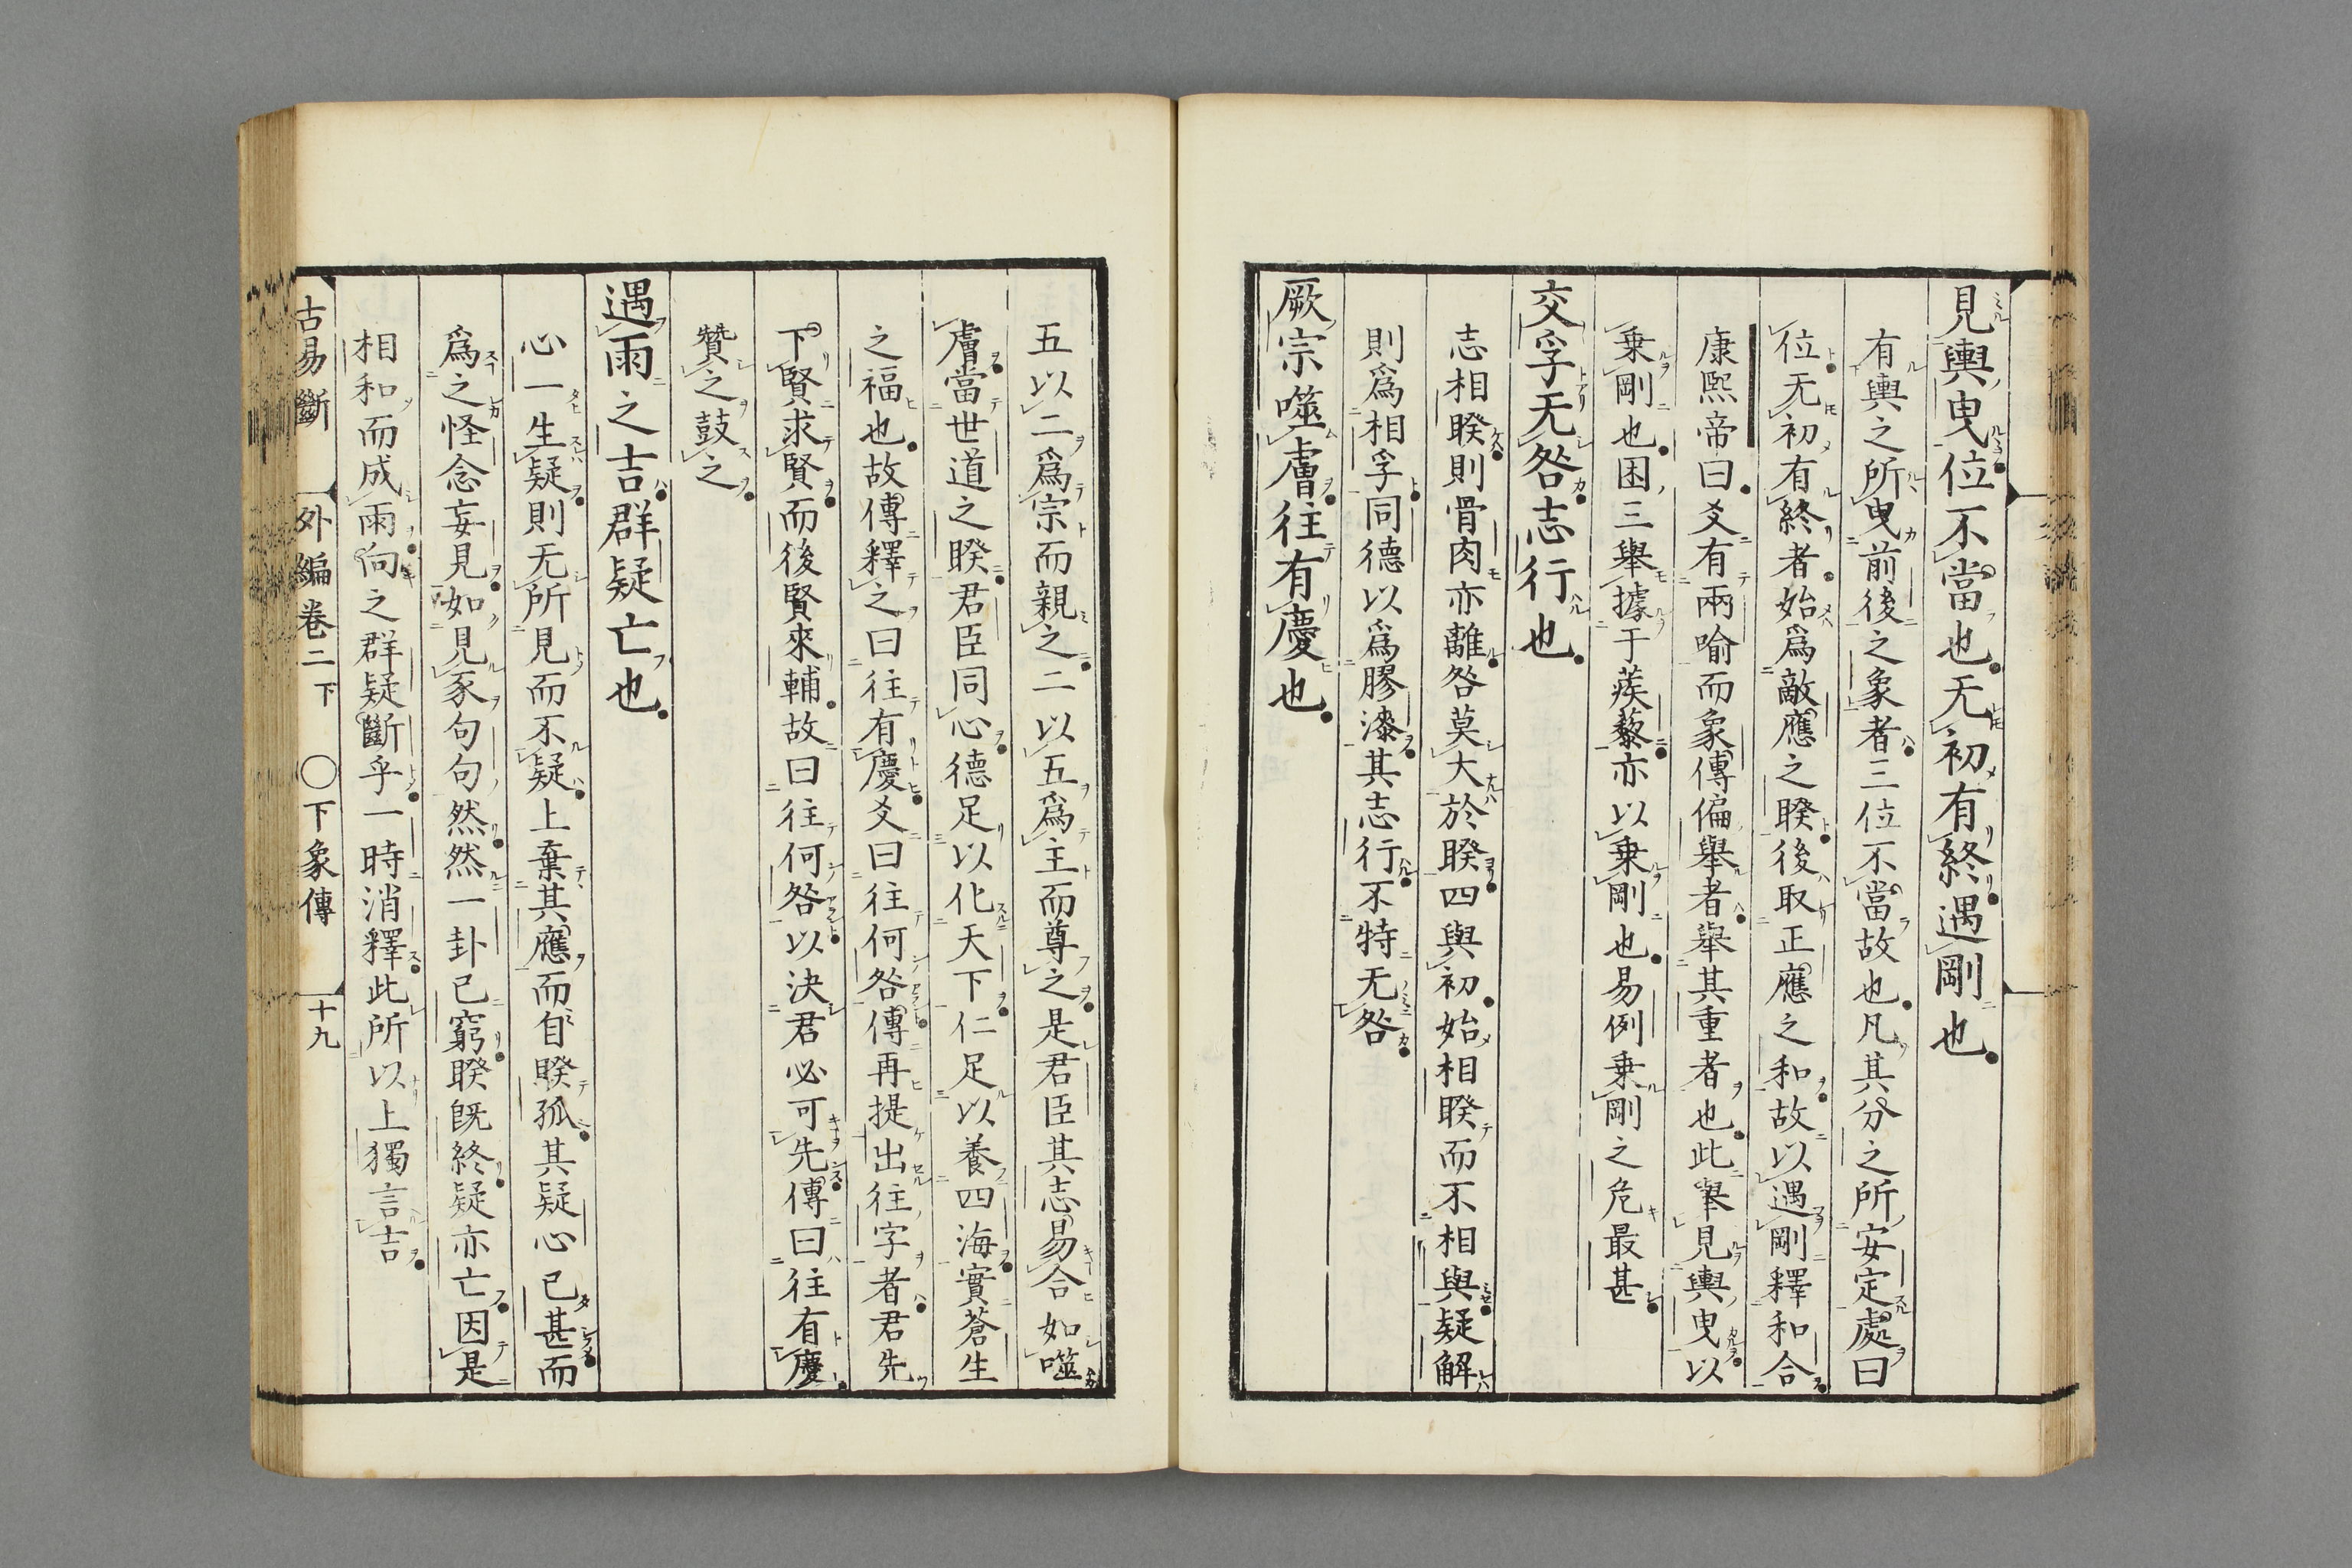 見輿曳位不當也无初有終遇剛也
有輿之所曳前後之象者三位不當故也凡其分之所安定處曰
位无初有終者始爲敵應之睽後取正應之和故以遇剛釋和合
康熙帝曰爻有兩喻而象傳偏舉者舉其重者也此舉見輿曳以
乘剛也困三舉據于蒺藜亦以乘剛也易例乗剛之危最甚
交孚无咎志行也
志相睽則骨肉亦離咎莫大於睽四與初始相睽而不相與疑解
則爲相孚同德以爲膠漆其志行不特无咎
厥宗噬膚往有慶也
五以二爲宗而親之二以五爲主而尊之是君臣其志易合如噬
膚當世道之睽君臣同心德足以化天下仁足以養四海實蒼生
之福也故傳釋之曰往有慶爻曰往何咎傳再提出往字者君先
下賢求賢而後賢來輔故曰往何咎以決君必可先傳曰往有慶
贊之鼓之
遇雨之吉群疑亡也
心一生疑則无所見而不疑上棄其應而自睽孤其疑心已甚而
爲之怪念妄見如見豕句句然然一卦已窮睽既終疑亦亡因是
相和而成雨向之群疑斷乎一時消釋此所以上獨言吉
古易斷 外編卷二下 〇下象傳 十九